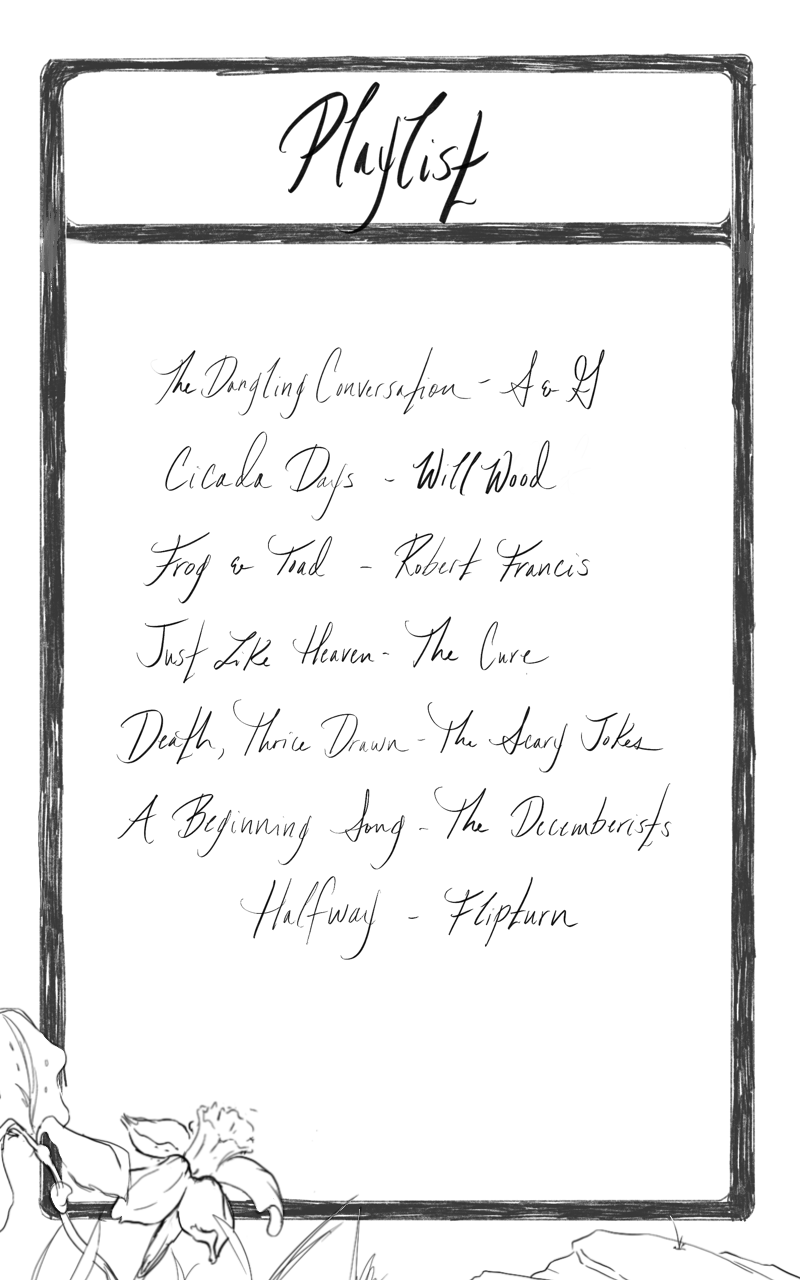 Playlist
The Dangling Conversation - S & G
Cicada Days - Will Wood
Frog & Toad - Robert Francis
Just Like Heaven - The Cure
Death, Thrice Drawn - The Scary Jokes
A Beginning Song - The Decemberists
Halfway - Flipturn